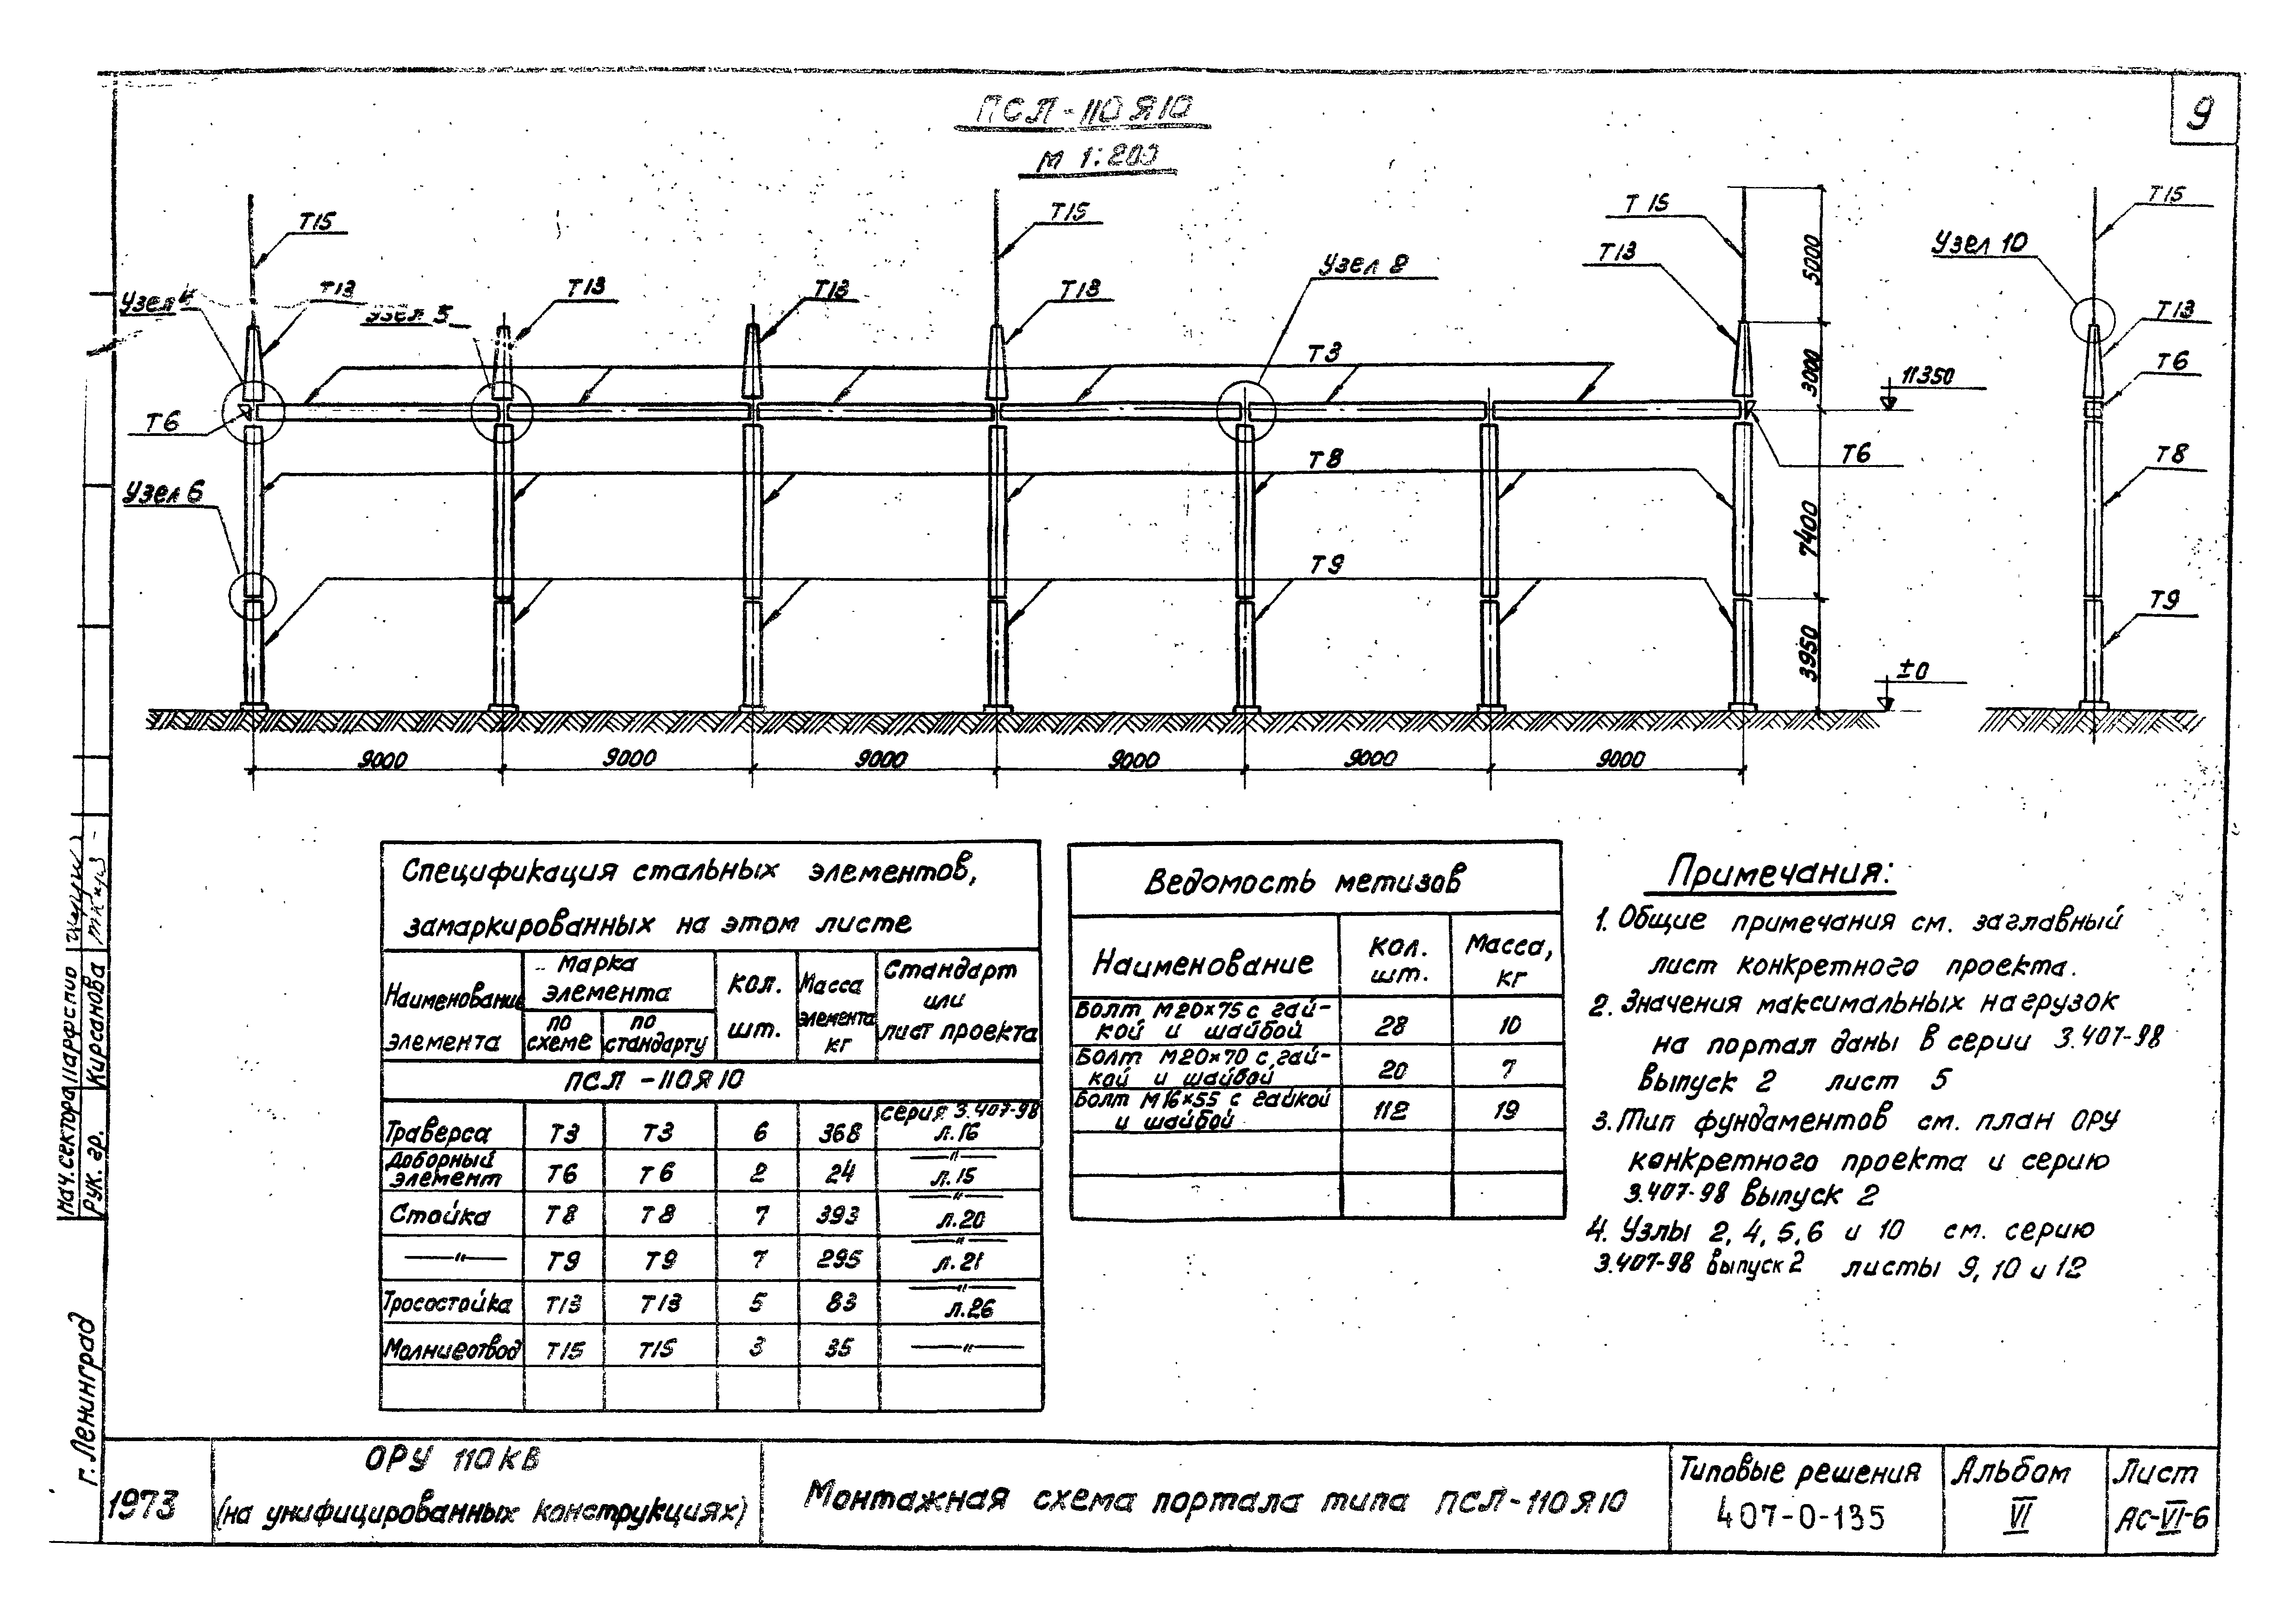 9
ПСЛ-110Я10
М 1:200
Т15
Т15
Т15
Т15
Узел 4
Т13
Узел 5
Т13
Т13
Т13
Узел 8
Т13
Узел 10
Т13
5000
3000
7400
3950
Т3
11350
Т6
Т6
Т6
Т8
Т8
Узел 6
Т9
Т9
±0
9000
9000
9000
9000
9000
9000
Спецификация стальных элементов,
замаркированных на этом листе
Наименование элемента
Марка элемента
по схеме
по стандарту
кол. шт.
Масса элемента кг
Стандарт или лист проекта
ПСЛ-110Я10
Траверса Т3 Т3 6 368 серия 3.407-98 л.16
Доборный элемент Т6 Т6 2 24 —"— л.15
Стойка Т8 Т8 7 393 —"— л.20
—"— Т9 Т9 7 295 —"— л.21
Тросостойка Т13 Т13 5 83 —"— л.26
Молниеотвод Т15 Т15 3 35 —"—
Ведомость метизов
Наименование
кол. шт.
Масса, кг
Болт М20×75 с гай-
кой и шайбой 28 10
Болт М20×70 с гай-
кой и шайбой 20 7
Болт М16×55 с гайкой
и шайбой 112 19
Примечания:
1. Общие примечания см. заглавный
лист конкретного проекта.
2. Значения максимальных нагрузок
на портал даны в серии 3.407-98
выпуск 2 лист 5
3. Тип фундаментов см. план ОРУ
конкретного проекта и серию
3.407-98 выпуск 2
4. Узлы 2, 4, 5, 6 и 10 см. серию
3.407-98 выпуск 2 листы 9, 10 и 12
Нач. сектора
Рук. гр. Кирсанова
г. Ленинград
1973
ОРУ 110 кВ
(на унифицированных конструкциях)
Монтажная схема портала типа ПСЛ-110Я10
Типовые решения
407-0-135
Альбом
VI
Лист
АС-VI-6